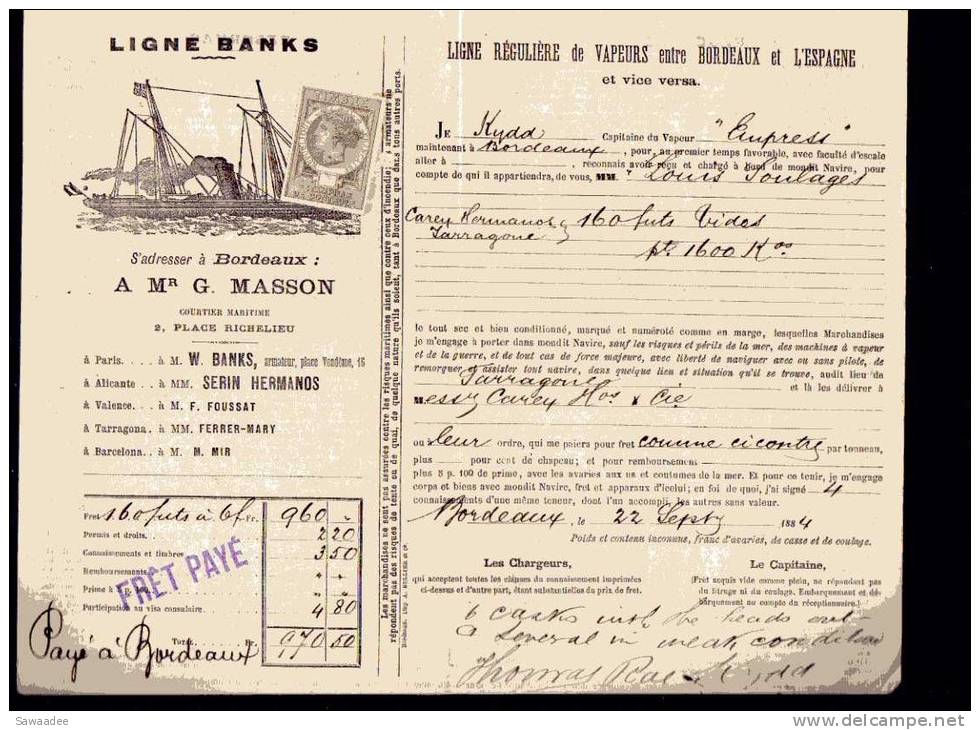 LIGNE BANKS
S'adresser à Bordeaux :
A MR G. MASSON
COURTIER MARITIME
2, PLACE RICHELIEU
à Paris.... à M. W. BANKS, armateur, place Vendôme, 16
à Alicante .. à MM. SERIN HERMANOS
à Valence... à M. F. FOUSSAT
à Tarragona. à MM. FERRER-MARY
à Barcelona.. à M. M. MIR
Fret 160 futs à 6f Fr. 960 -
Permis et droits. 2 20
Connaissements et timbres 3 50
Remboursements
Prime à
Participation au visa consulaire. 4 80
FRÊT PAYÉ
Total Fr. 970 50
Payé à Bordeaux
Les marchandises ne sont pas assurées contre les risques maritimes ainsi que contre ceux d'incendie; les armateurs ne
répondent pas des risques de tente ou de quai, de quelque nature qu'ils soient, tant à Bordeaux que dans tous autres ports.
LIGNE RÉGULIÈRE de VAPEURS entre BORDEAUX et L'ESPAGNE
et vice versa.
JE Kydd Capitaine du Vapeur "Empress"
maintenant à Bordeaux, pour, au premier temps favorable, avec faculté d'escale
aller à , reconnais avoir reçu et chargé à bord de mondit Navire, pour
compte de qui il appartiendra, de vous, MM. Louis Soulages
Carey Hermanos 160 futs Vides
Tarragone
pt 1600 Kos
le tout sec et bien conditionné, marqué et numéroté comme en marge, lesquelles Marchandises
je m'engage à porter dans mondit Navire, sauf les risques et périls de la mer, des machines à vapeur
et de la guerre, et de tout cas de force majeure, avec liberté de naviguer avec ou sans pilote, de
remorquer et assister tout navire, dans quelque lieu et situation qu'il se trouve, audit lieu de
Tarragone et là les délivrer à
Messrs Carey Hos & Cie
ou leur ordre, qui me paiera pour fret comme ci contre par tonneau,
plus pour cent de chapeau; et pour remboursement
plus 3 p. 100 de prime, avec les avaries aux us et coutumes de la mer. Et pour tenir ce, je m'engage
corps et biens avec mondit Navire, fret et apparaux d'icelui; en foi de quoi, j'ai signé 4
connaissements d'une même teneur, dont l'un accompli, les autres sans valeur.
Bordeaux, le 22 Sept 1884
Poids et contenu inconnus, franc d'avaries, de casse et de coulage.
Les Chargeurs,
qui acceptent toutes les clauses du connaissement imprimées
ci-dessus et d'autre part, étant substantielles du prix de fret.
Le Capitaine,
(Frêt acquis vide comme plein, ne répondant pas
du titrage ni du coulage. Embarquement et dé-
barquement au compte du réceptionnaire.)
6 casks with the heads out
& several in weak condition
Thomas Rae Kydd
Sawaadee
www.delcampe.net